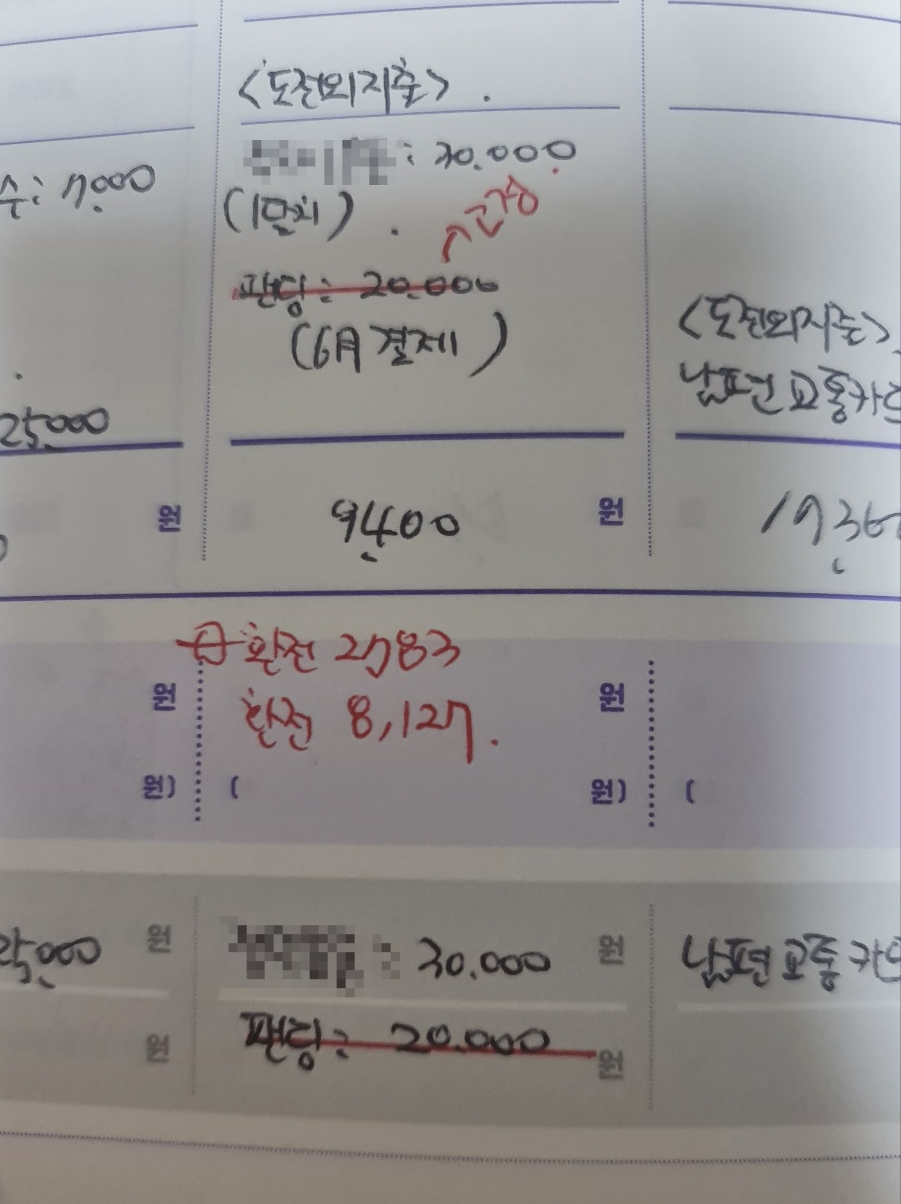 <도전외지출>
: 30.000
(1만치)
수: 7000
팬딩: 20.000
(6月 결제)
<도전외지출>
남편 교통카드
25.000
원
9400 원
1936
환전 2783
환전 8,127.
원
원
원)
(
원)
(
25,000 원
: 30.000 원
남편 교통카드
원
팬딩: 20.000 원